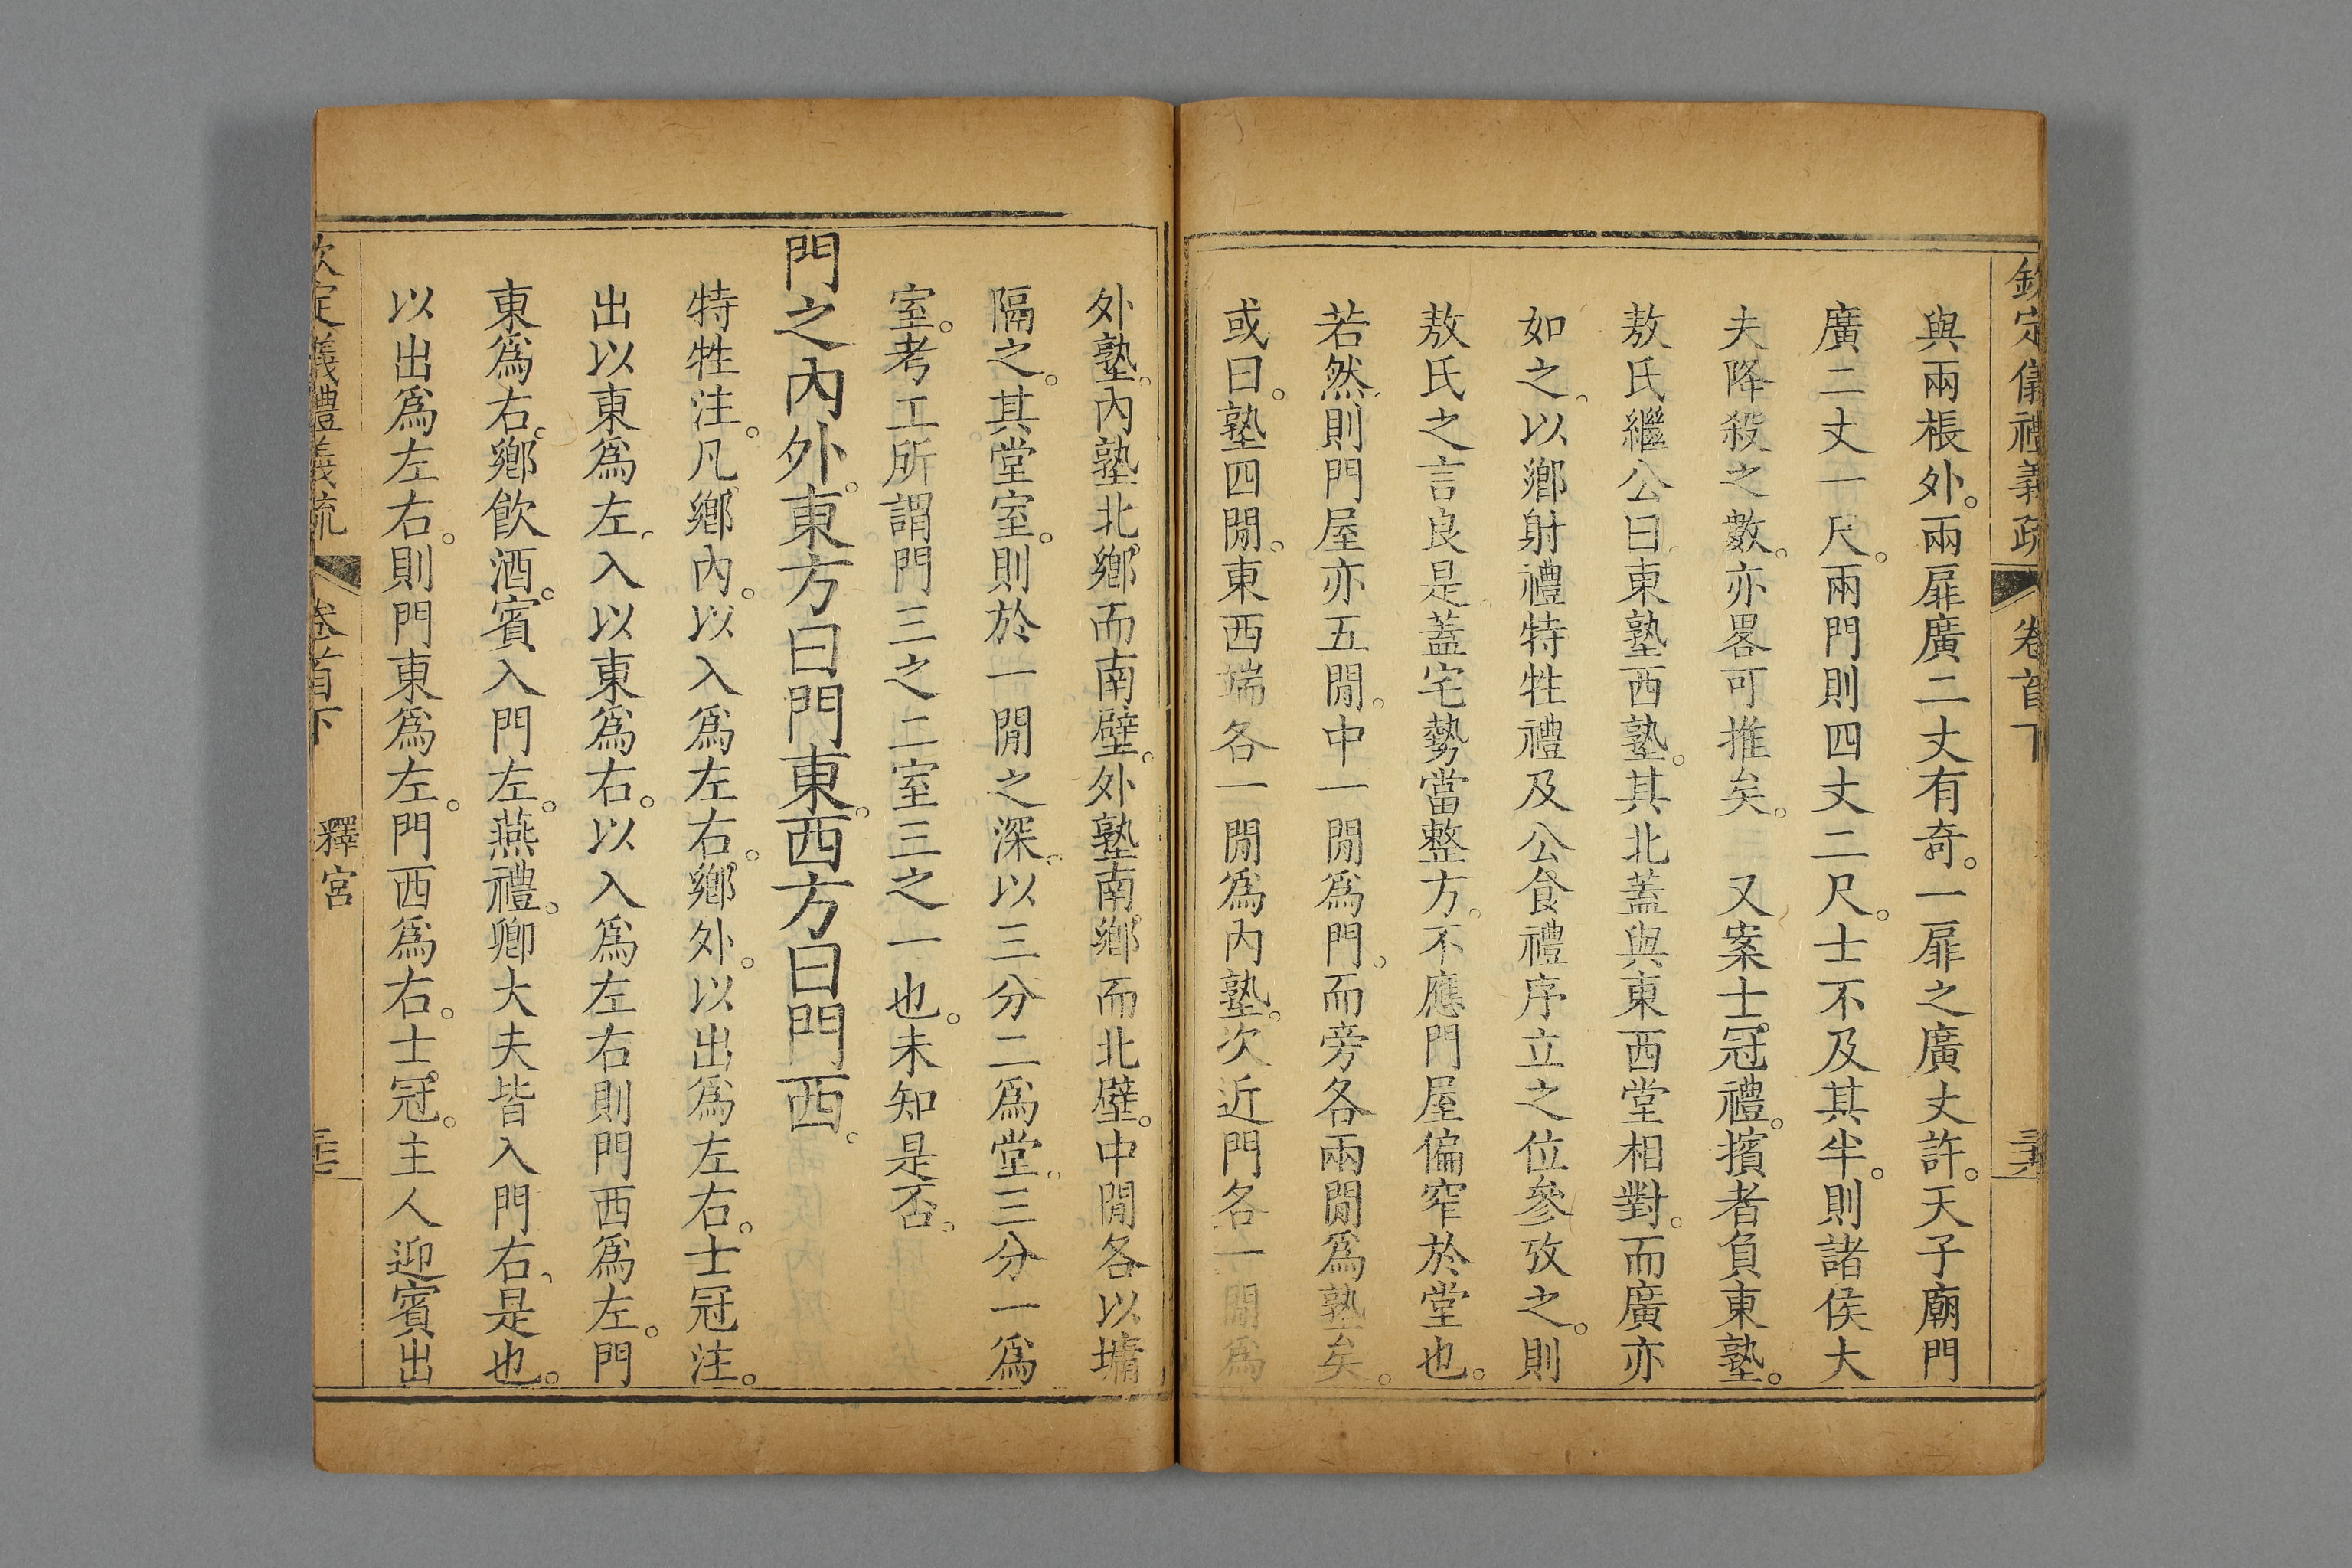 欽定儀禮義疏 卷首下
與兩棖外。兩扉廣二丈有奇。一扉之廣丈許。天子廟門
廣二丈一尺。兩門則四丈二尺。士不及其半。則諸侯大
夫降殺之數。亦畧可推矣。 又案士冠禮。擯者負東塾。
敖氏繼公曰。東塾西塾。其北蓋與東西堂相對。而廣亦
如之。以鄉射禮特牲禮及公食禮序立之位參攷之。則
敖氏之言良是。蓋宅勢當整方。不應門屋偏窄於堂也。
若然。則門屋亦五閒。中一閒爲門。而旁各兩閒爲塾矣。
或曰。塾四閒。東西端各一閒爲內塾。次近門各一閒爲
外塾。內塾北鄉而南壁。外塾南鄉而北壁。中閒各以墉
隔之。其堂室。則於一閒之深。以三分二爲堂。三分一爲
室。考工所謂門三之二室三之一也。未知是否。
門之內外。東方曰門東。西方曰門西。
特牲注。凡鄉內。以入爲左右。鄉外。以出爲左右。士冠注。
出以東爲左。入以東爲右。以入爲左右則門西爲左。門
東爲右。鄉飲酒。賓入門左。燕禮。卿大夫皆入門右。是也。
以出爲左右。則門東爲左。門西爲右。士冠。主人迎賓出
欽定儀禮義疏 卷首下 釋宮